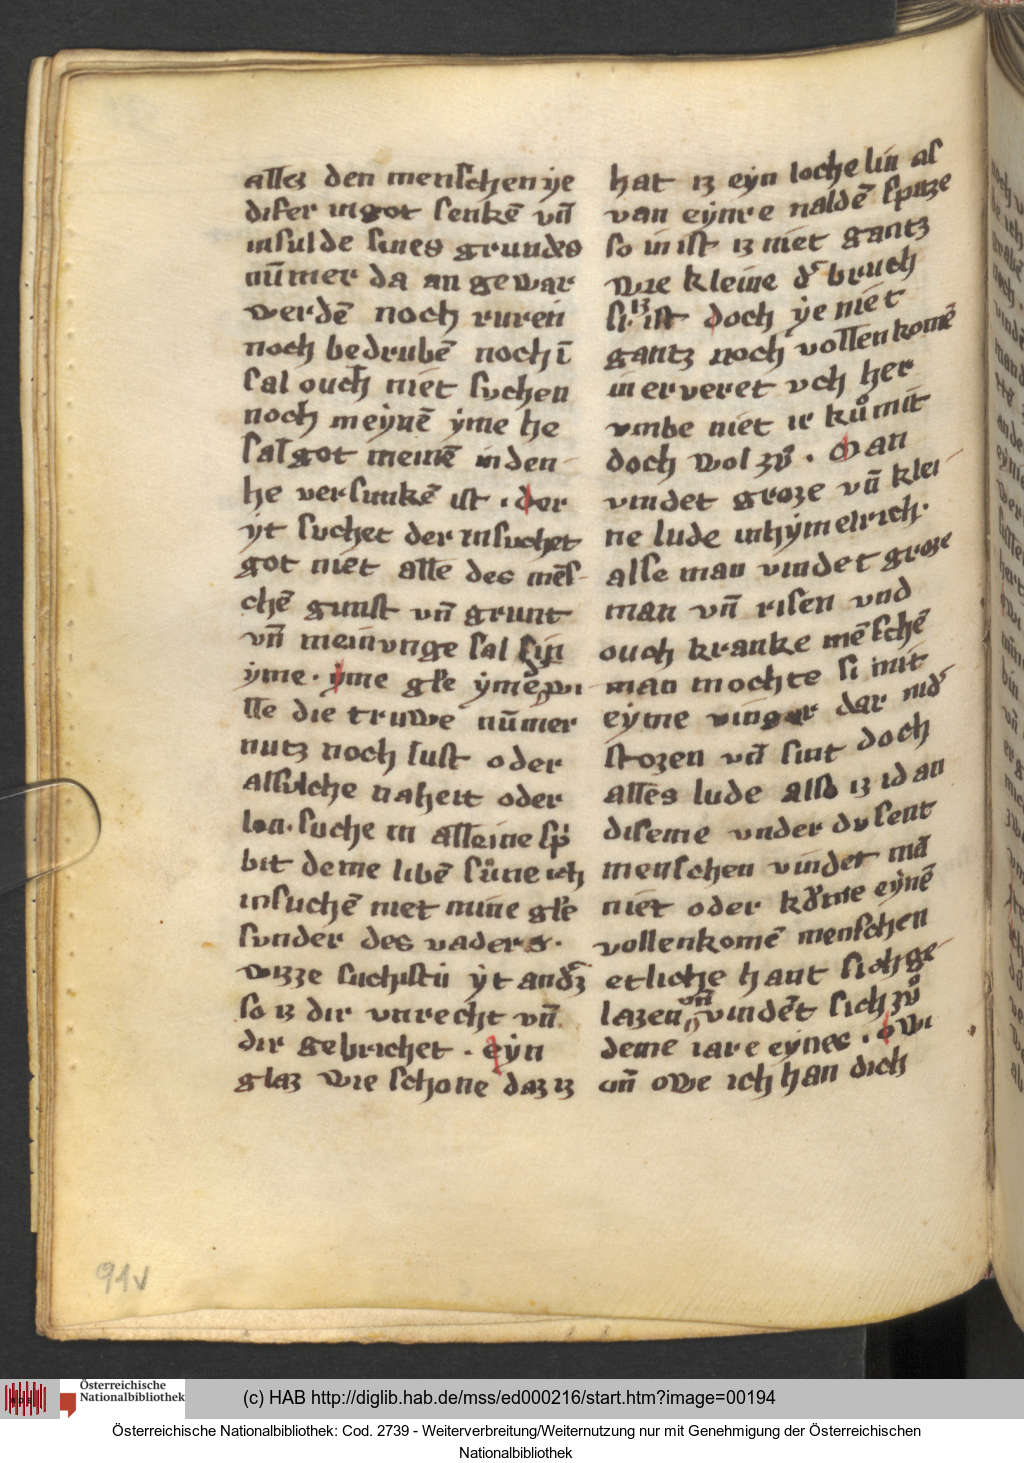 alles den menschen ẏe
diser in got senkē vn̄
in sulde sines grundes
nūmer da an gewar
werdē noch ruren
noch bedrubē noch ī
sal ouch niet suchen
noch meẏnē ẏme he
sal got meinē in den
he versunkē ist . der
ẏt suchet der in suchet
got niet alle des mēs-
chē gunst vn̄ grunt
vn̄ meinunge sal sin
ẏme . ẏme gle ẏme wi
lle die truwe nūmer
nutz noch lust oder
alsulche naheit oder
lon . suche in alleine sp̄
bit deme libē sůne ich
in suchē niet mine gle
sunder des vaders .
wizze suchistu ẏt anders
so iz dir vnrecht vn̄
dir gebrichet . eẏn
glaz wie schone daz iz
hat iz eẏn lochelin as
van eẏnre naldē spitze
so in ist iz niet gantz
wie kleine der bruch
si . iz ist doch ẏe niet
gantz noch vollenkomē
in erveret vch her
vmbe niet ir kůmit
doch wol zů . Man
vindet groze vn̄ klei-
ne lude in hẏmelrich .
alse man vindet groze
man vn̄ risen vnd
ouch kranke mēschē
man mochte si mit
eẏme vinger dar nider
stozen vn̄ sint doch
alles lude also iz id an
diseme vnder dusent
menschen vindet mā
niet oder kůme eẏnē
vollenkomē menschen
etliche hant sich ge-
lazen vn̄ vindēt sich zů
deme iare eẏnes . owi
vn̄ owe ich han dich
91v
(c) HAB http://diglib.hab.de/mss/ed000216/start.htm?image=00194
Österreichische Nationalbibliothek
Österreichische Nationalbibliothek: Cod. 2739 - Weiterverbreitung/Weiternutzung nur mit Genehmigung der Österreichischen
Nationalbibliothek